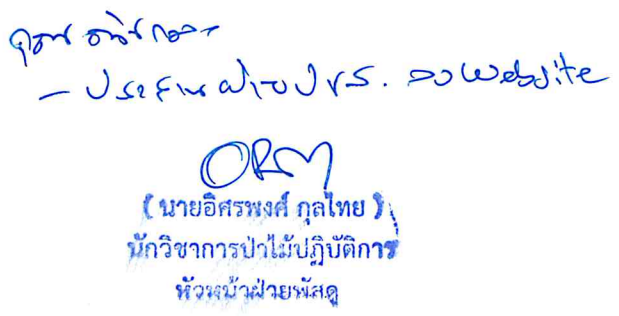 คุณ
- ประสานฝ่าย ปชส. ลง website
( นายอิศรพงศ์ กุลไทย )
นักวิชาการป่าไม้ปฏิบัติการ
หัวหน้าฝ่ายพัสดุ